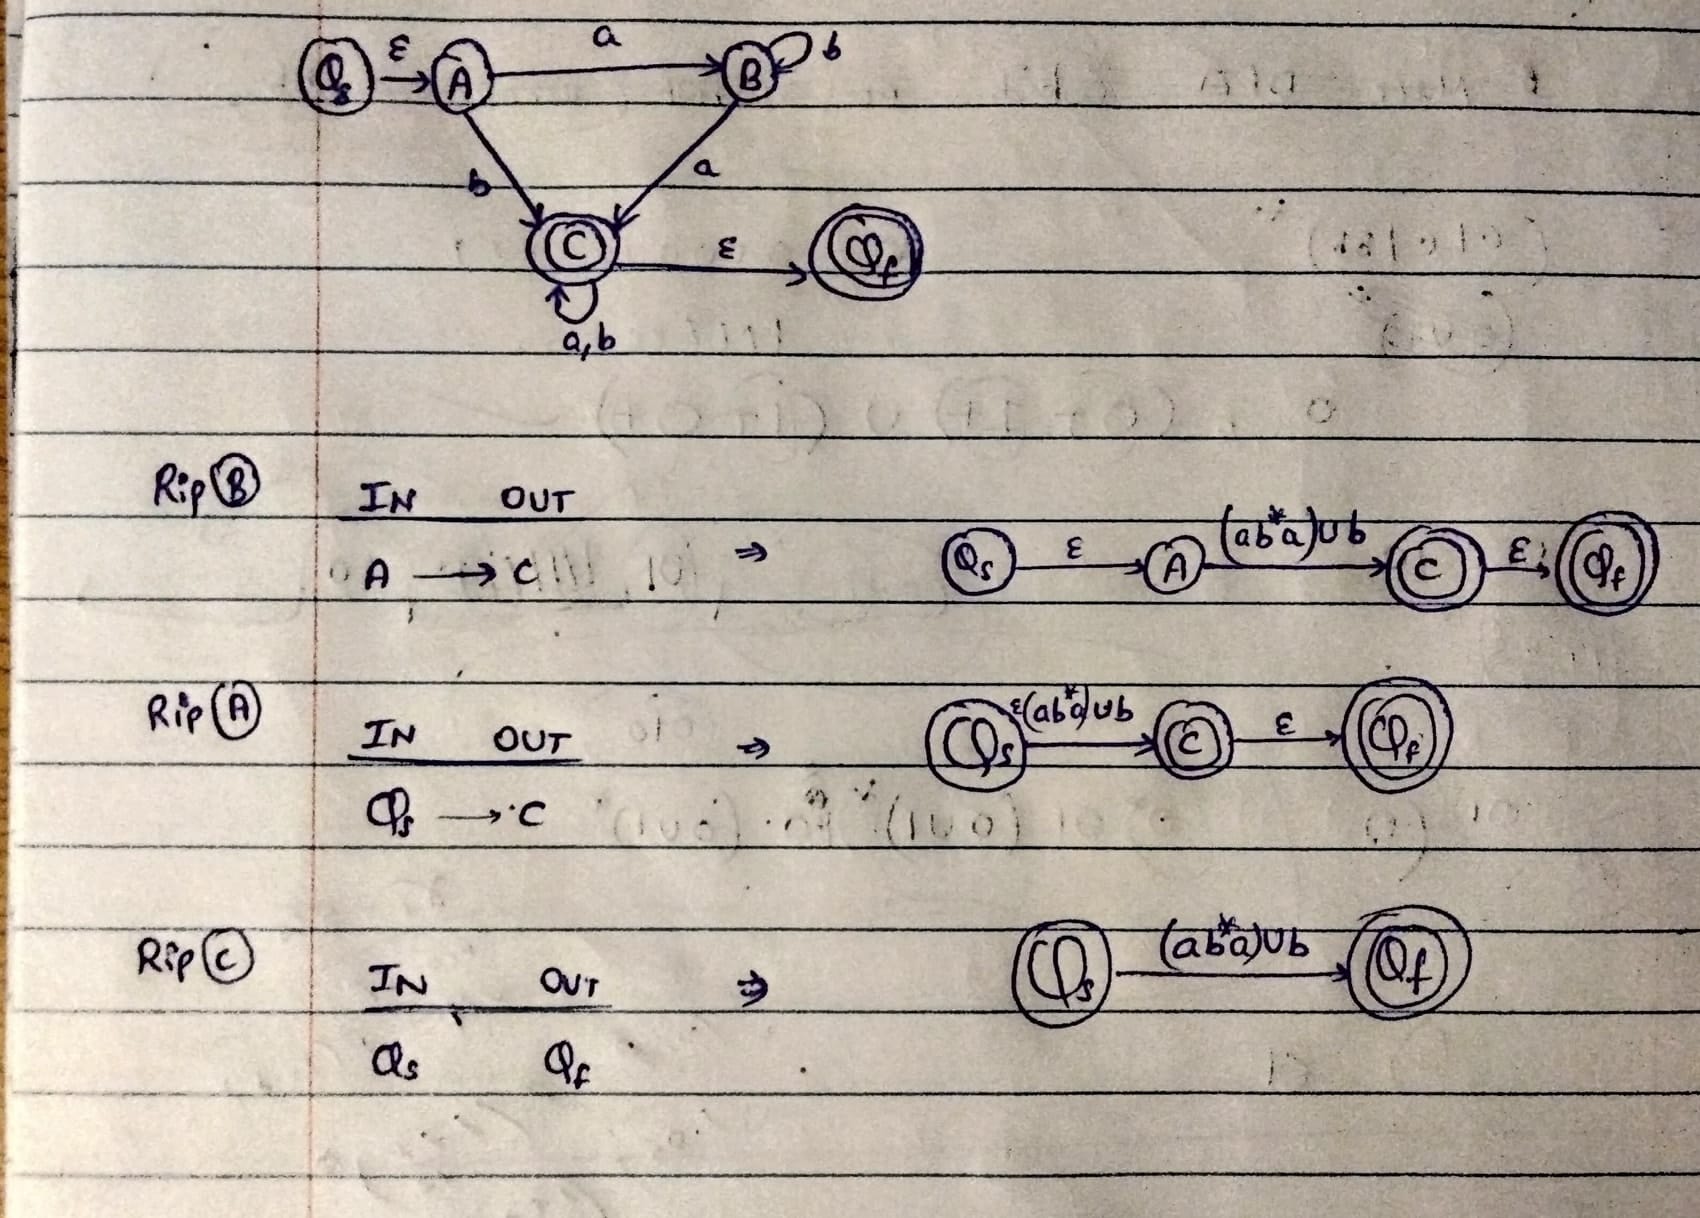 Qs ε A a B b
b a
C ε Qf
a,b
Rip B IN OUT
A → C ⇒ Qs ε A (ab*a)∪b C ε Qf
Rip A IN OUT ⇒ Qs ε(ab*a)∪b C ε Qf
Qs → C
Rip C IN OUT ⇒ Qs (ab*a)∪b Qf
Qs Qf